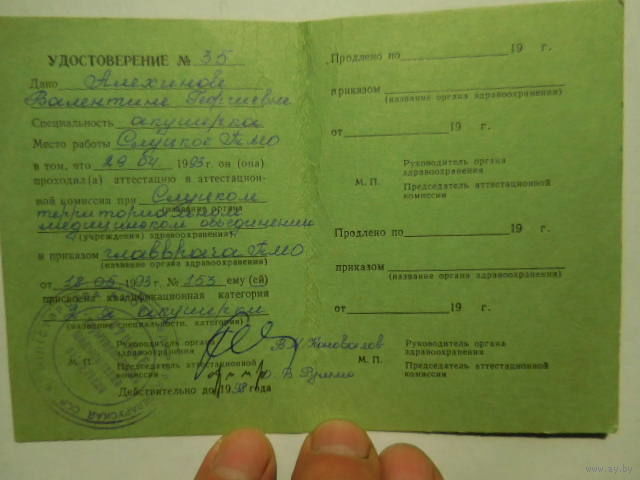 УДОСТОВЕРЕНИЕ № 35
Дано Алехинове
Валентине Георгиевне
Специальность акушерка
Место работы Слуцкое ТМО
в том, что 29 04 1993 г. он (она)
проходил(а) аттестацию в аттестацион-
ной комиссии при Слуцком
территориальном
название органа
медицинском объединении
(учреждения) здравоохранения)
и приказом главврача ТМО
(название органа здравоохранения)
от 18 05 1993 г. № 153 ему (ей)
присвоена квалификационная категория
акушерка
(название специальности, категория)
Руководитель органа
здравоохранения В.И. Коновалов
М. П. Председатель аттестационной
комиссии
Действительно до 1998 года
БЕЛАРУСКАЯ ССР
Продлено по 19 г.
приказом
(название органа здравоохранения)
от 19 г.
Руководитель органа
здравоохранения
М. П. Председатель аттестационной
комиссии
Продлено по 19 г.
приказом
(название органа здравоохранения)
от 19 г.
Руководитель органа
здравоохранения
М. П. Председатель аттестационной
комиссии
www.ay.by